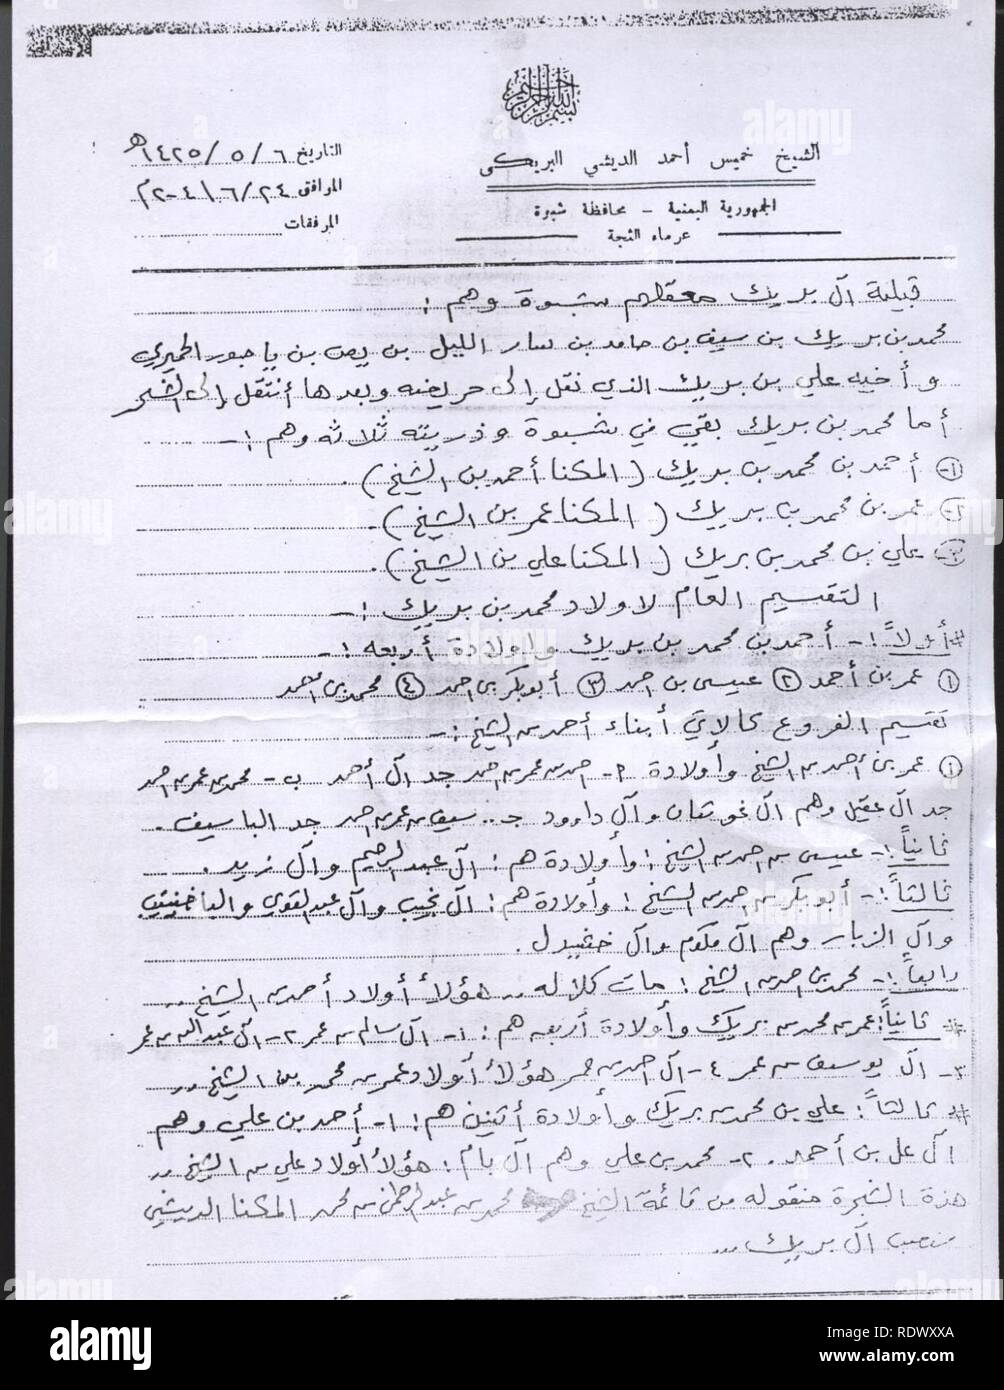 بسم الله الرحمن الرحيم
الشيخ خميس أحمد الديشي البريكي
الجمهورية اليمنية - محافظة شبوة
عرماء الثجة
التاريخ ٦ / ٥ / ١٤٢٥هـ
الموافق ٢٤ / ٦ / ٢٠٠٤م
المرفقات
قبيلة آل بريك معقلهم شبوة وهم :
محمد بن بريك بن سيف بن حامد بن سار الليل بن يص بن يا جبور الحميري
وأخيه علي بن بريك الذي نقل إلى حريضه وبعدها أنتقل إلى الشحر
أما محمد بن بريك بقي في شبوة وذريته ثلاثه وهم :-
١- أحمد بن محمد بن بريك (المكنا أحمد بن الشيخ).
٢- عمر بن محمد بن بريك (المكنا عمر بن الشيخ).
٣- علي بن محمد بن بريك (المكنا علي بن الشيخ).
التقسيم العام لاولاد محمد بن بريك :-
* أولاً :- أحمد بن محمد بن بريك واولادة أربعه :-
١ عمر بن أحمد ٢ عيسى بن احمد ٣ أبوبكر بن احمد ٤ محمد بن احمد
تقسيم الفروع كالاتي أبناء أحمد بن الشيخ :-
١ عمر بن أحمد بن الشيخ وأولادة أ- احمد بن عمر بن احمد جد آل أحمد ب- محمد بن عمر بن احمد
جد آل عقيل وهم آل غوثان وآل داوود جـ.. سيف بن عمر بن احمد جد الباسيف .
ثانياً :- عيسى بن احمد بن الشيخ : وأولادة هم : آل عبدالرحيم وآل زيد .
ثالثاً :- أبوبكر بن احمد بن الشيخ : وأولادة هم : آل نجيب وآل عبدالقوي والباخنيتيت
وآل الزبار وهم آل وآل خنبدل .
رابعاً :- محمد بن احمد بن الشيخ : مات كلاله .. هؤلأ أولاد أحمد بن الشيخ ..
* ثانياً : عمر بن محمد بن بريك وأولادة أربعه هم : ١- آل سالم بن عمر ٢- آل عبدالله بن عمر
٣- آل يوسف بن عمر ٤- آل احمد بن عمر هؤلأ أولاد عمر بن محمد بن الشيخ ..
* ثالثاً : علي بن محمد بن بريك وأولادة أثنين هم : ١- أحمد بن علي وهم
آل علي بن أحمد . ٢- محمد بن علي وهم آل بام : هؤلأ أولاد علي بن الشيخ ..
هذة الشجرة منقوله من قائمة الشيخ محمد بن عبدالرحمن بن محمد المكنا الديشي
منصب آل بريك ...
alamy
Image ID: RDWXXA
www.alamy.com